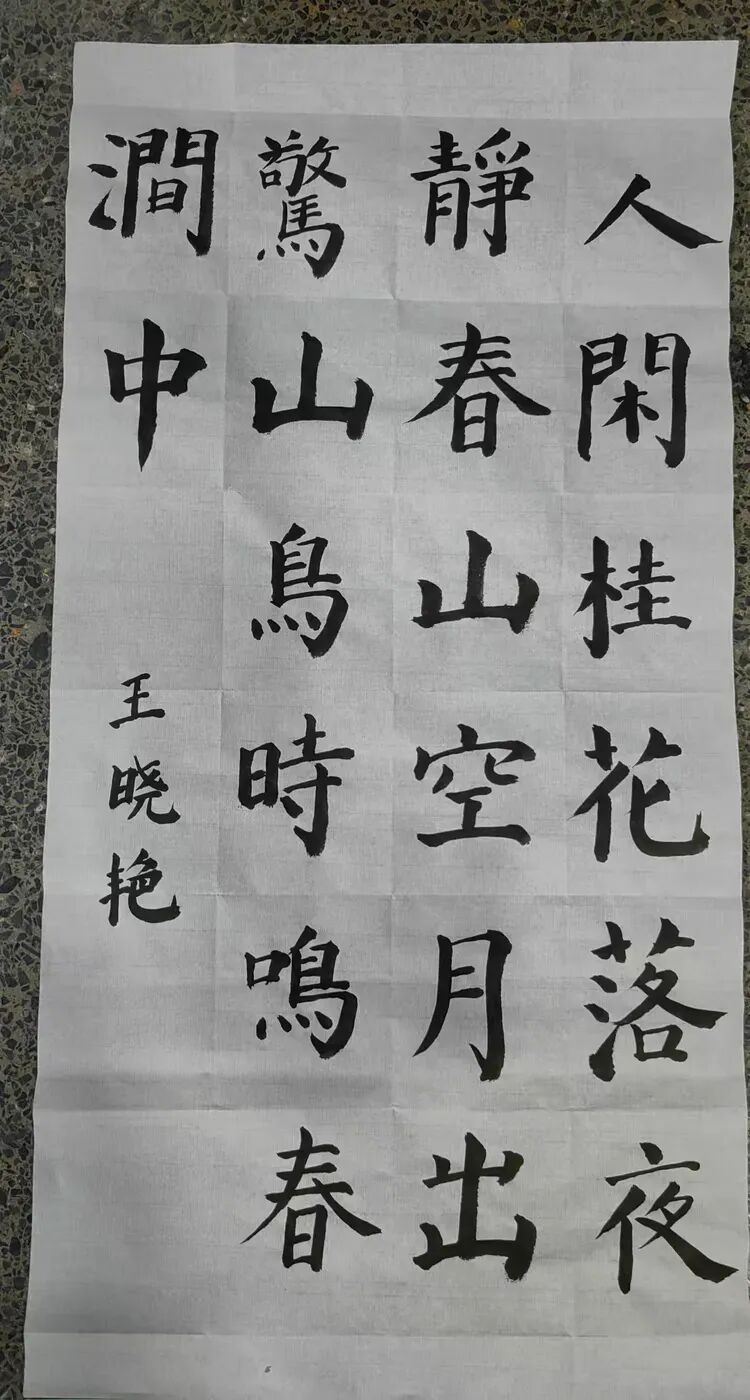 人閑桂花落夜
靜春山空月出
驚山鳥時鳴春
澗中
王晓艳